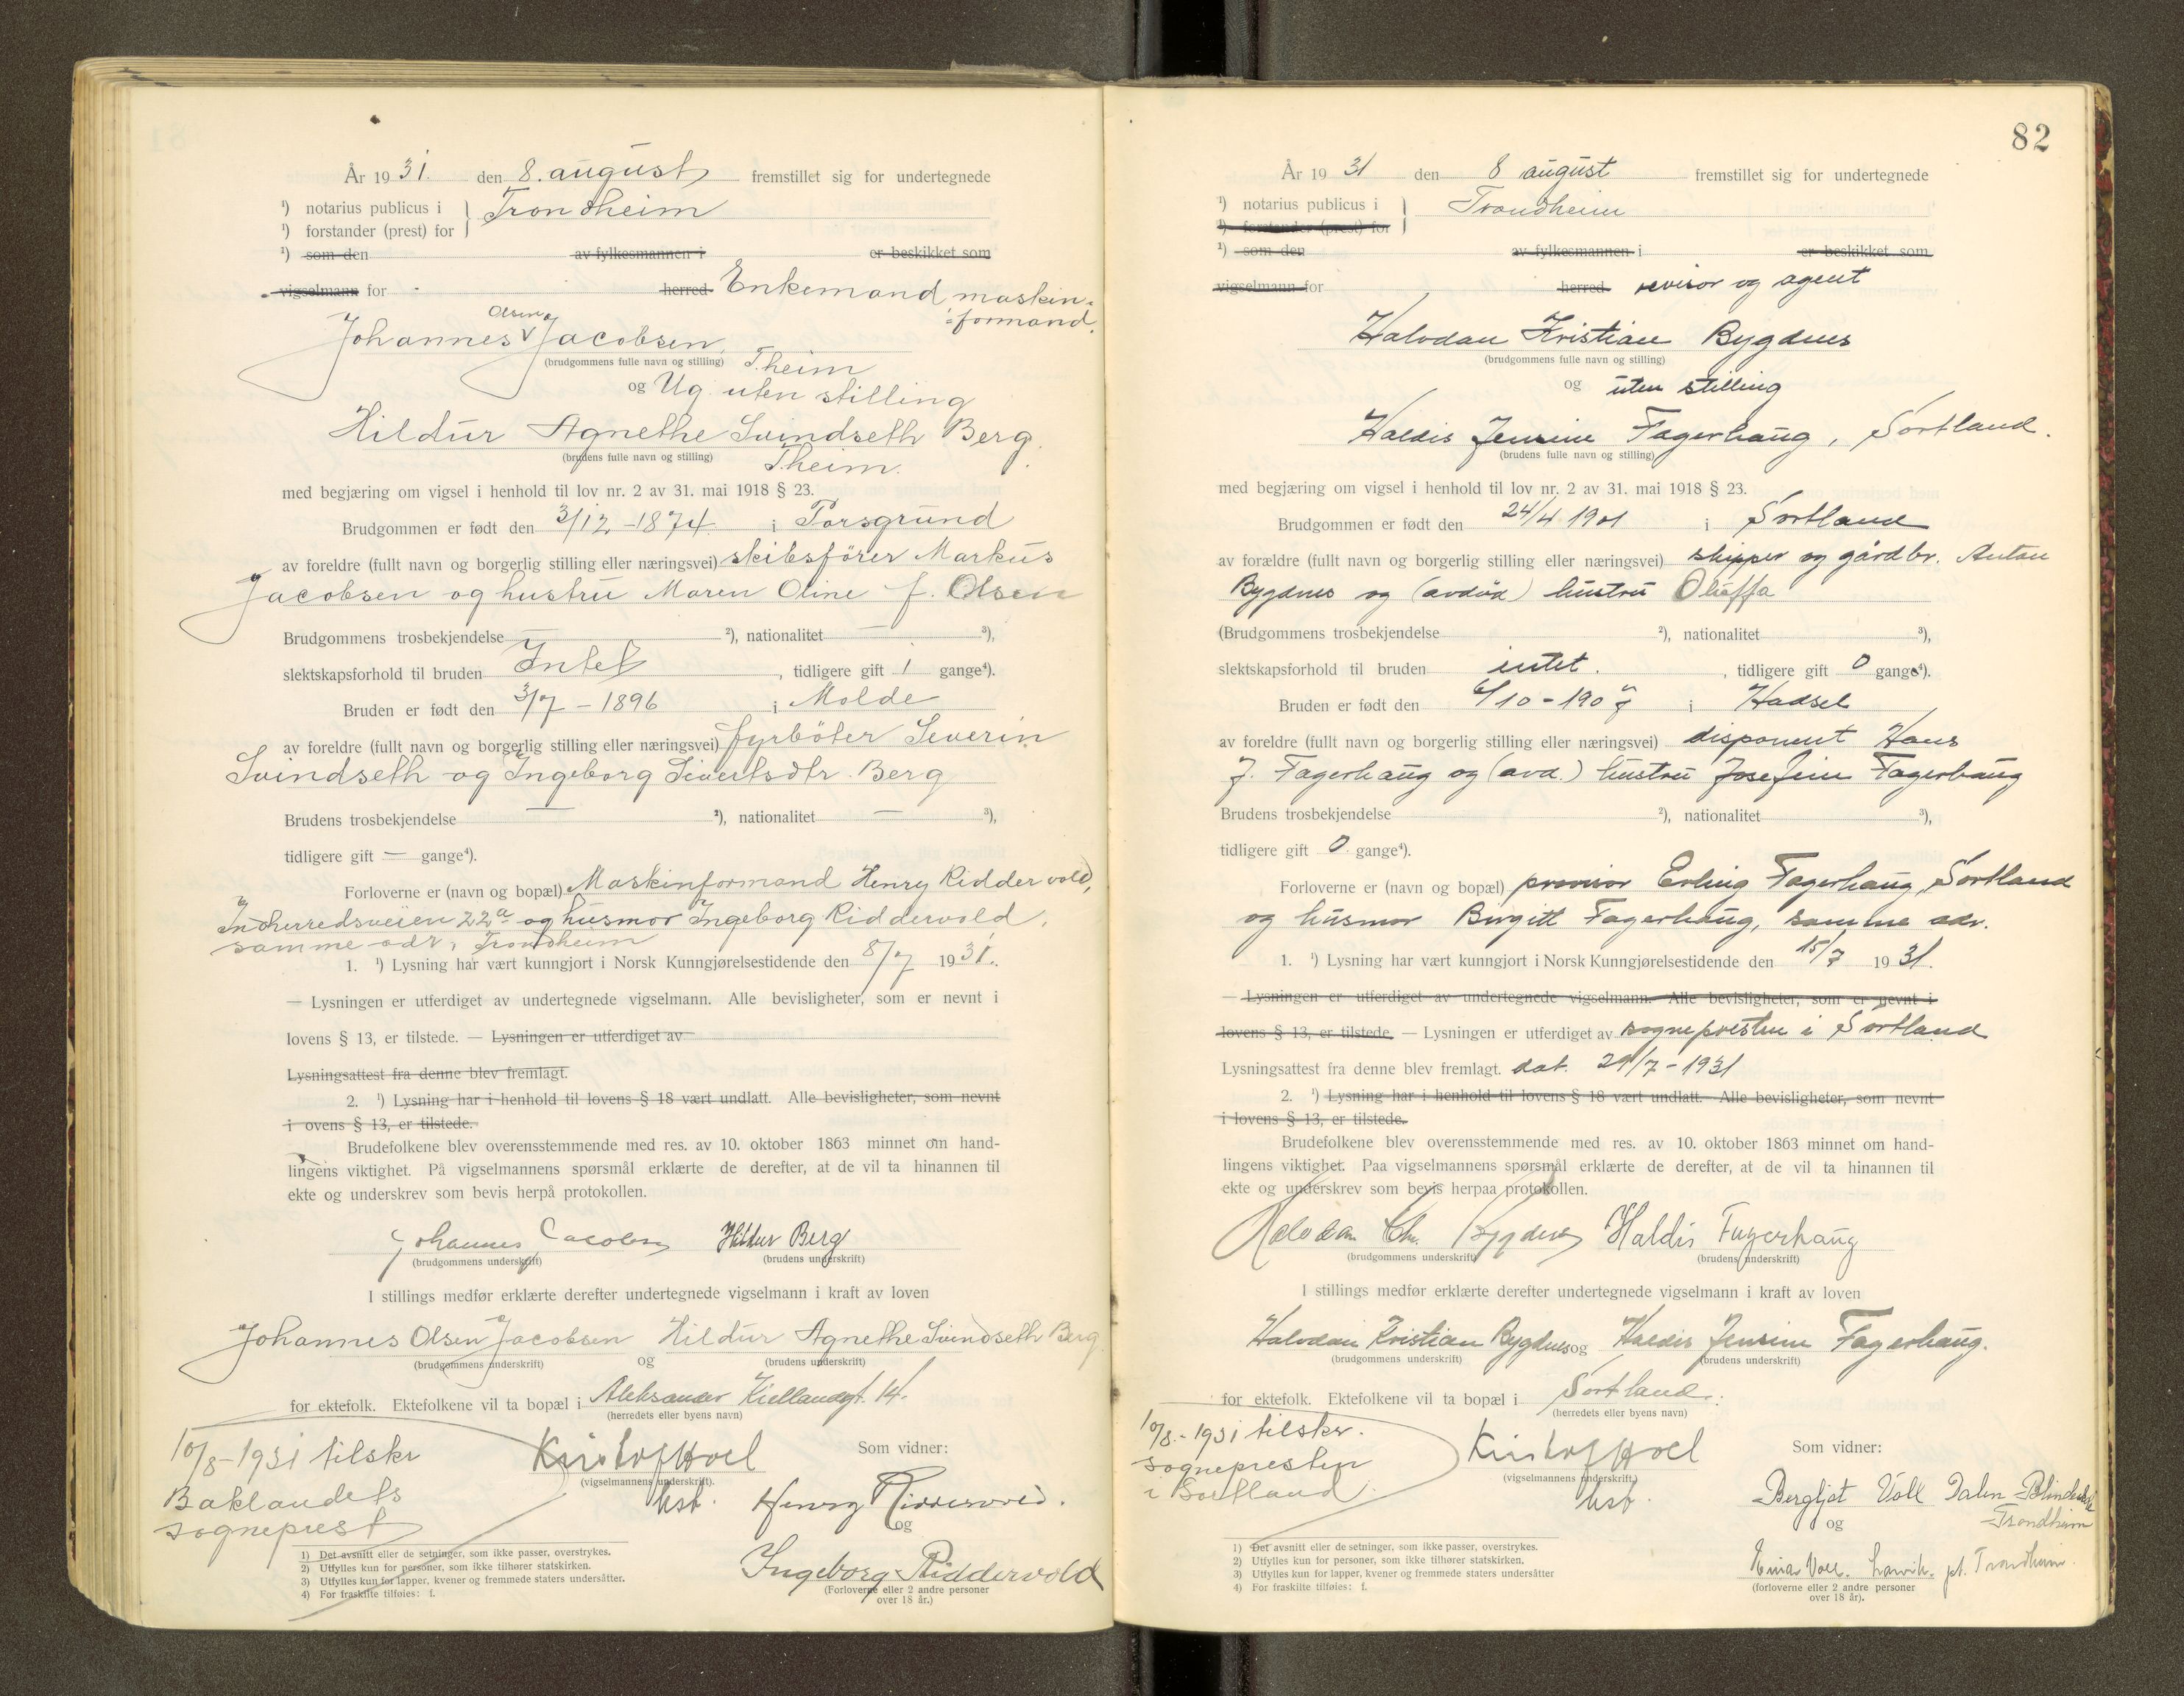 År 1931. den 8. august fremstillet sig for undertegnede
¹) notarius publicus i } Trondheim
¹) forstander (prest) for
¹) som den av fylkesmannen i er beskikket som
vigselmann for herred Enkemand maskin-
formand.
Olsen
Johannes V Jacobsen,
(brudgommens fulle navn og stilling) T.heim
og Ug. uten stilling
Hildur Agnethe Svindseth Berg.
(brudens fulle navn og stilling) T.heim.
med begjæring om vigsel i henhold til lov nr. 2 av 31. mai 1918 § 23.
Brudgommen er født den 3/12 - 1874 i Porsgrund
av foreldre (fullt navn og borgerlig stilling eller næringsvei) skibsfører Markus
Jacobsen og hustru Maren Oline f. Olsen
Brudgommens trosbekjendelse — ²), nationalitet — ³),
slektskapsforhold til bruden Intet, tidligere gift 1 gange⁴).
Bruden er født den 3/7 - 1896 i Molde
av foreldre (fullt navn og borgerlig stilling eller næringsvei) fyrbøter Severin
Svindseth og Ingeborg Sivertsdtr. Berg
Brudens trosbekjendelse — ²), nationalitet — ³),
tidligere gift — gange⁴).
Forloverne er (navn og bopæl) Maskinformand Henry Riddervold,
Indherredsveien 22a og husmor Ingeborg Riddervold,
samme adr, Trondheim
1. ¹) Lysning har vært kunngjort i Norsk Kunngjørelsestidende den 8/7 1931.
— Lysningen er utferdiget av undertegnede vigselmann. Alle bevisligheter, som er nevnt i
lovens § 13, er tilstede. — Lysningen er utferdiget av
Lysningsattest fra denne blev fremlagt.
2. ¹) Lysning har i henhold til lovens § 18 vært undlatt. Alle bevisligheter, som nevnt
i ovens § 13, er tilstede.
Brudefolkene blev overensstemmende med res. av 10. oktober 1863 minnet om hand-
lingens viktighet. På vigselmannens spørsmål erklærte de derefter, at de vil ta hinannen til
ekte og underskrev som bevis herpå protokollen.
Johannes Jacobsen Hildur Berg
(brudgommens underskrift) (brudens underskrift)
I stillings medfør erklærte derefter undertegnede vigselmann i kraft av loven
Johannes Olsen Jacobsen Hildur Agnethe Svindseth Berg
(brudgommens underskrift) og (brudens underskrift)
for ektefolk. Ektefolkene vil ta bopæl i Aleksander Kiellandsgt. 14.
(herredets eller byens navn)
10/8-1931 tilskr
Baklandets
sogneprest
Kristof Hoel
(vigselmannens underskrift).
kst.
Som vidner:
Henry Riddervold.
og
Ingeborg Riddervold
(Forloverne eller 2 andre personer
over 18 år.)
1) Det avsnitt eller de setninger, som ikke passer, overstrykes.
2) Utfylles kun for personer, som ikke tilhører statskirken.
3) Utfylles kun for lapper, kvener og fremmede staters undersåtter.
4) For fraskilte tilføies: f.
82
År 1931 den 8 august fremstillet sig for undertegnede
¹) notarius publicus i } Trondheim
¹) forstander (prest) for
¹) som den av fylkesmannen i er beskikket som
vigselmann for herred revisor og agent
Halvdan Kristian Bygdnes
(brudgommens fulle navn og stilling)
og uten stilling
Haldis Jensine Fagerhaug, Sortland.
(brudens fulle navn og stilling)
med begjæring om vigsel i henhold til lov nr. 2 av 31. mai 1918 § 23.
Brudgommen er født den 24/4 1901 i Sortland
av forældre (fullt navn og borgerlig stilling eller næringsvei) skipper og gårdbr. Anton
Bygdnes og (avdød) hustru
(Brudgommens trosbekjendelse ²), nationalitet ³),
slektskapsforhold til bruden intet., tidligere gift 0 gange⁴).
Bruden er født den 6/10-1907 i Hadsel
av foreldre (fullt navn og borgerlig stilling eller næringsvei) disponent Hans
J. Fagerhaug og (avd.) hustru Josefine Fagerhaug
Brudens trosbekjendelse ²), nationalitet ³),
tidligere gift 0 gange⁴).
Forloverne er (navn og bopæl) provisor Erling Fagerhaug, Sortland
og husmor Birgitt Fagerhaug, samme adr.
1. ¹) Lysning har vært kunngjort i Norsk Kunngjørelsestidende den 15/7 1931.
— Lysningen er utferdiget av undertegnede vigselmann. Alle bevisligheter, som er nevnt i
lovens § 13, er tilstede. — Lysningen er utferdiget av sognepresten i Sortland
Lysningsattest fra denne blev fremlagt. dat. 29/7-1931
2. ¹) Lysning har i henhold til lovens § 18 vært undlatt. Alle bevisligheter, som nevnt
i lovens § 13, er tilstede.
Brudefolkene blev overensstemmende med res. av 10. oktober 1863 minnet om hand-
lingens viktighet. Paa vigselmannens spørsmål erklærte de derefter, at de vil ta hinannen til
ekte og underskrev som bevis herpaa protokollen.
Halvdan Chr. Bygdnes Haldis Fagerhaug
(brudgommens underskrift) (brudens underskrift)
I stillings medfør erklærte derefter undertegnede vigselmann i kraft av loven
Halvdan Kristian Bygdnes og Haldis Jensine Fagerhaug.
(brudgommens underskrift) (brudens underskrift)
for ektefolk. Ektefolkene vil ta bopæl i Sortland.
(herredets eller byens navn)
10/8.-1931 tilskr.
sognepresten
i Sortland.
Kristof Hoel
(vigselmannens underskrift)
kst.
Som vidner:
Bergljot Voll Dalen
og Trondheim
Einar Voll. Larvik. pt. Trondheim.
(forloverne eller 2 andre personer
over 18 år).
1) Det avsnitt eller de setninger, som ikke passer, overstrykes.
2) Utfylles kun for personer, som ikke tilhører statskirken.
3) Utfylles kun for lapper, kvener og fremmede staters undersåtter
4) For fraskilte tilføies: f.